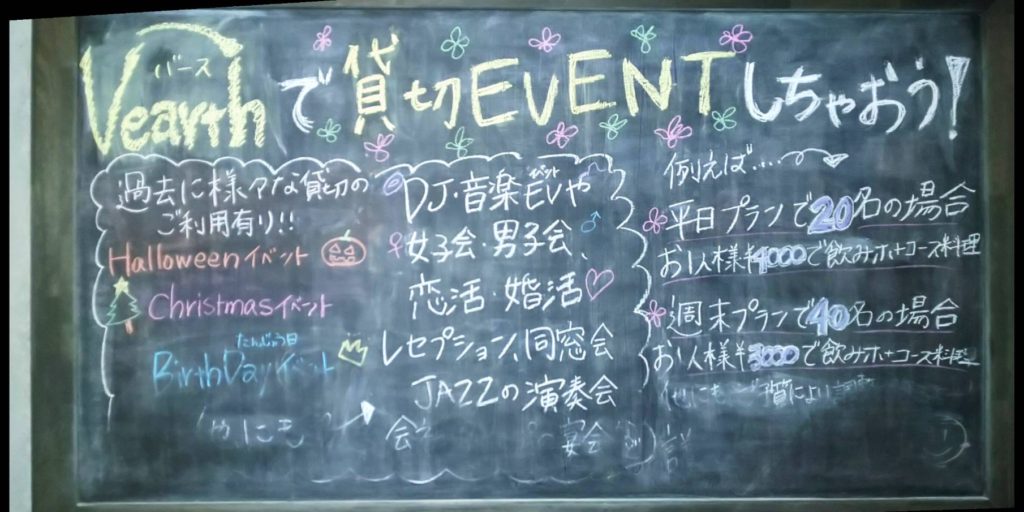 バース
Vearthで貸切EVENTしちゃおう!
過去に様々な貸切の
ご利用有り!!
Halloweenイベント
Christmasイベント
たんじょう日
BirthDayイベント
イベント
DJ・音楽EVや
♀女子会・男子会、♂
恋活・婚活♡
レセプション、同窓会
JAZZの演奏会
会
宴会
例えば....
平日プランで20名の場合
お1人様¥4000で飲みホ+コース料理
週末プランで40名の場合
お1人様¥3000で飲みホ+コース料理